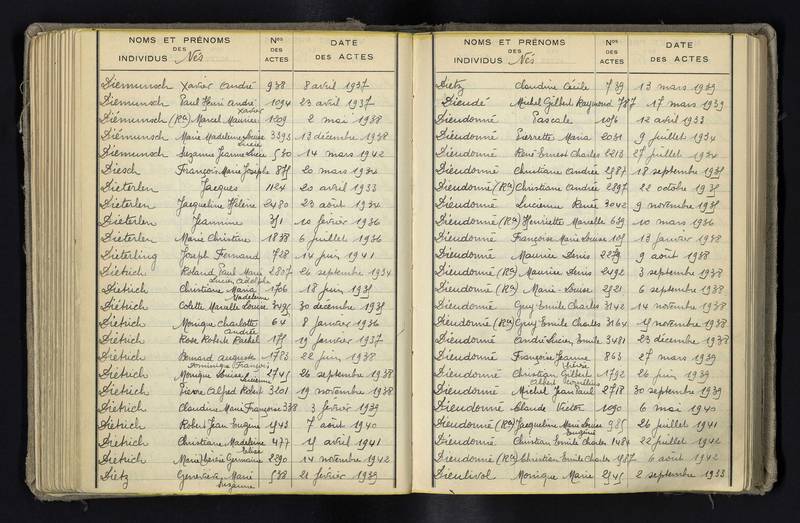 NOMS ET PRÉNOMS
DES
INDIVIDUS Nés
Nos
DES
ACTES
DATE
DES ACTES
Diemunsch Xavier André 938 8 avril 1937
Diemunsch Paul Henri André 1094 23 avril 1937
Xavier
Diémunsch (Ron) Marcel Maurice 1209 2 mai 1938
Diémunsch Marie Madeleine Louise 3393 13 décembre 1938
Lucie
Diemunsch Suzanne Jeanne Lucie 530 14 mars 1942
Diesch François Marie Joseph 875 20 mars 1934
Dieterlen Jacques 1124 20 avril 1933
Dieterlen Jacqueline Hélène 2480 23 août 1934
Dieterlen Jeannine 351 10 février 1936
Dieterlen Marie Christine 1838 6 juillet 1936
Dieterling Joseph Fernand 728 14 juin 1941
Dietrich Roland Paul Marie 2807 26 septembre 1934
Lucien Adolphe
Dietrich Christiane Maria 1706 18 juin 1935
Madeleine
Diétrich Colette Marcelle Louise 3495 30 décembre 1935
Dietrich Monique Charlotte 64 8 janvier 1936
Andrée
Dietrich Rose Roberte Rachel 175 19 janvier 1937
Dietrich Bernard Auguste 1783 22 juin 1938
Dominique François
Dietrich Monique Louise 2745 26 septembre 1938
Lucienne
Dietrich Pierre Alfred Robert 3201 19 novembre 1938
Dietrich Claudine Marie Françoise 338 3 février 1939
Dietrich Robert Jean Eugène 1543 7 août 1940
Dietrich Christiane Madeleine 477 15 avril 1941
Elise
Dietrich Marie Thérèse Germaine 2290 14 novembre 1942
Dietz Geneviève Marie 538 21 février 1939
Suzanne
NOMS ET PRÉNOMS
DES
INDIVIDUS Nés
Nos
DES
ACTES
DATE
DES ACTES
Dietz Claudine Cécile 739 13 mars 1939
Dieudé Michel Gilbert Raymond 787 17 mars 1939
Dieudonné Pascale 1056 12 avril 1933
Dieudonné Pierrette Maria 2031 9 juillet 1934
Dieudonné René Ernest Charles 2213 27 juillet 1934
Dieudonné Christiane Andrée 2587 18 septembre 1935
Dieudonné (Ron) Christiane Andrée 2897 22 octobre 1935
Dieudonné Lucienne Renée 3042 9 novembre 1935
Dieudonné (Ron) Henriette Marcelle 639 10 mars 1936
Dieudonné Françoise Marie Louise 105 13 janvier 1938
Dieudonné Maurice Denis 2279 9 août 1938
Dieudonné (Ron) Maurice Denis 2492 3 septembre 1938
Dieudonné (Ron) Marie-Louise 2521 6 septembre 1938
Dieudonné Guy Emile Charles 3142 14 novembre 1938
Dieudonné (Ron) Guy Emile Charles 3164 15 novembre 1938
Dieudonné André Lucien Emile 3481 23 décembre 1938
Dieudonné Françoise Jeanne 863 27 mars 1939
Dieudonné Christian Gilbert 1792 26 juin 1939
Albert
Dieudonné Michel Jean Paul 2718 30 septembre 1939
Dieudonné Claude Victor 1090 6 mai 1940
Dieudonné (Ron) Jacqueline Marie Louise 985 26 juillet 1941
Eugénie
Dieudonné Christian Emile Charles 1484 22 juillet 1942
Dieudonné (Ron) Christian Emile Charles 1587 6 août 1942
Dieulivol Monique Marie 2545 2 septembre 1933